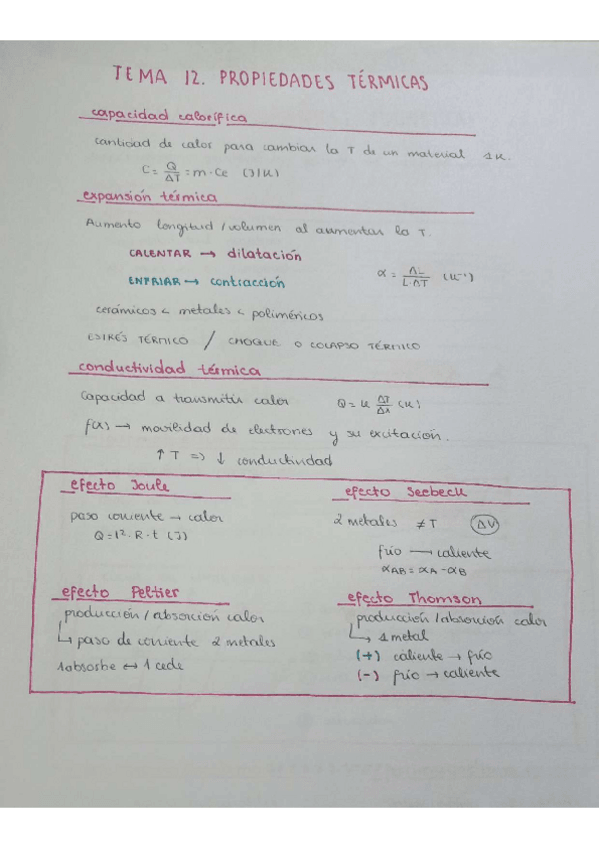 TEMA 12. PROPIEDADES TÉRMICAS
capacidad calorífica
cantidad de calor para cambiar la T de un material 1K.
C = Q/ΔT = m · Ce (J/K)
expansión térmica
Aumento longitud / volumen al aumentar la T.
CALENTAR → dilatación
ENFRIAR → contracción
α = ΔL/L·ΔT (K⁻¹)
cerámicos < metales < poliméricos
ESTRÉS TÉRMICO / CHOQUE O COLAPSO TÉRMICO
conductividad térmica
Capacidad a transmitir calor Q = K ΔT/Δx (K)
f(x) → movilidad de electrones y su excitación.
↑ T => ↓ conductividad
efecto Joule
paso corriente → calor
Q = I² · R · t (J)
efecto Seebeck
2 metales ≠ T ΔV
frío → caliente
αAB = αA - αB
efecto Peltier
producción / absorción calor
↳ paso de corriente 2 metales
1 absorbe ↔ 1 cede
efecto Thomson
producción / absorción calor
↳ 1 metal
(+) caliente → frío
(-) frío → caliente